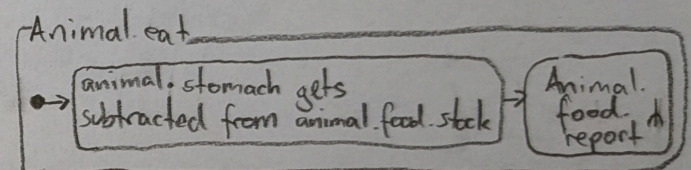 Animal.eat
animal.stomach gets
subtracted from animal.food.stock
Animal.
food.
report